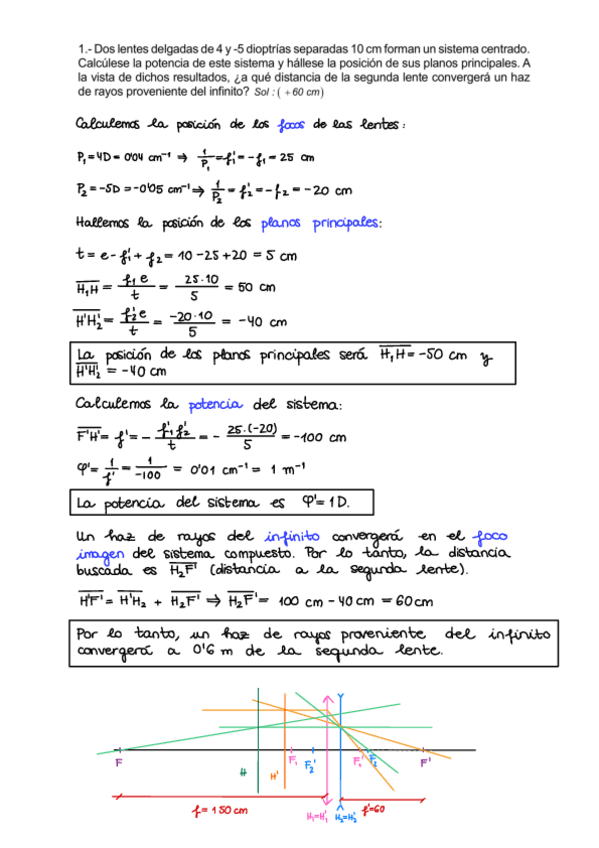 1.- Dos lentes delgadas de 4 y -5 dioptrías separadas 10 cm forman un sistema centrado.
Calcúlese la potencia de este sistema y hállese la posición de sus planos principales. A
la vista de dichos resultados, ¿a qué distancia de la segunda lente convergerá un haz
de rayos proveniente del infinito? Sol : ( +60 cm)
Calculemos la posición de los focos de las lentes:
P₁ = 4D = 0'04 cm⁻¹ ⇒ 1/P₁ = f₁' = -f₁ = 25 cm
P₂ = -5D = -0'05 cm⁻¹ ⇒ 1/P₂ = f₂' = -f₂ = -20 cm
Hallemos la posición de los planos principales:
t = e - f₁' + f₂ = 10 - 25 + 20 = 5 cm
H₁H = f₁ e / t = 25·10 / 5 = 50 cm
H'H₂' = f₂' e / t = -20·10 / 5 = -40 cm
La posición de los planos principales será H₁H = -50 cm y
H'H₂' = -40 cm
Calculemos la potencia del sistema:
F'H' = f' = - f₁' f₂' / t = - 25·(-20) / 5 = -100 cm
φ' = 1/f' = 1/-100 = 0'01 cm⁻¹ = 1 m⁻¹
La potencia del sistema es φ' = 1 D.
Un haz de rayos del infinito convergerá en el foco
imagen del sistema compuesto. Por lo tanto, la distancia
buscada es H₂F' (distancia a la segunda lente).
H'F' = H'H₂ + H₂F' ⇒ H₂F' = 100 cm - 40 cm = 60 cm
Por lo tanto, un haz de rayos proveniente del infinito
convergerá a 0'6 m de la segunda lente.
F H H' F₁ F₂' F₁' F₂ F'
f = 150 cm H₁=H₁' H₂=H₂' f'=60